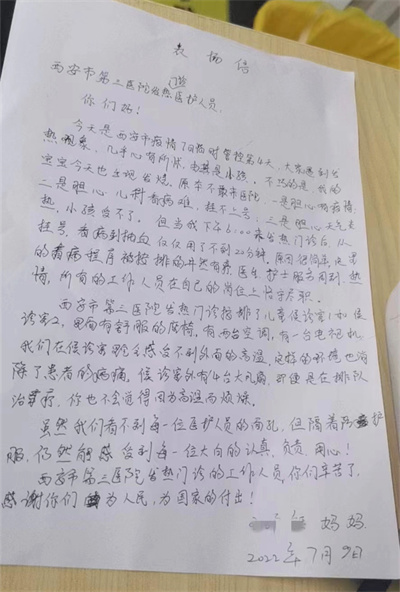 表扬信
西安市第三医院发热门诊医护人员
你们好!
今天是西安市疫情7日临时管控第4天,大家遇到发
热现象,几乎心有所忧,尤其是小孩。不巧的是,我的
宝宝今天也出现发烧,原本不敢去医院,一是担心有疫情,
二是担心儿科看病难,挂不上号;三是担心天气太
热,小孩受不了。但当我下午6:00来发热门诊后,从
挂号,看病到抽血仅仅用了不到20分钟。
的看病程序被安排的井然有序 医生、护士服务周到、热
情,所有的工作人员在自己的岗位上恪守尽职。
西安市第三医院发热门诊指排了儿童候诊室1和候
诊室2,里面有舒服的座椅,有两台空调,有一台电视机
我们在候诊室里完全感受不到外面的高温,这样的环境也消
除了患者的病痛。候诊室外有4台大风扇,即使是在排队
治疗,你也不会觉得因为高温而烦燥。
虽然我们看不到每一位医护人员的面孔,但隔着防护
服,仍然能感受到每一位大白的认真、负责、用心!
西安市第三医院发热门诊的工作人员,你们辛苦了,
感谢你们为人民,为国家的付出!
妈妈
2022年7月9日